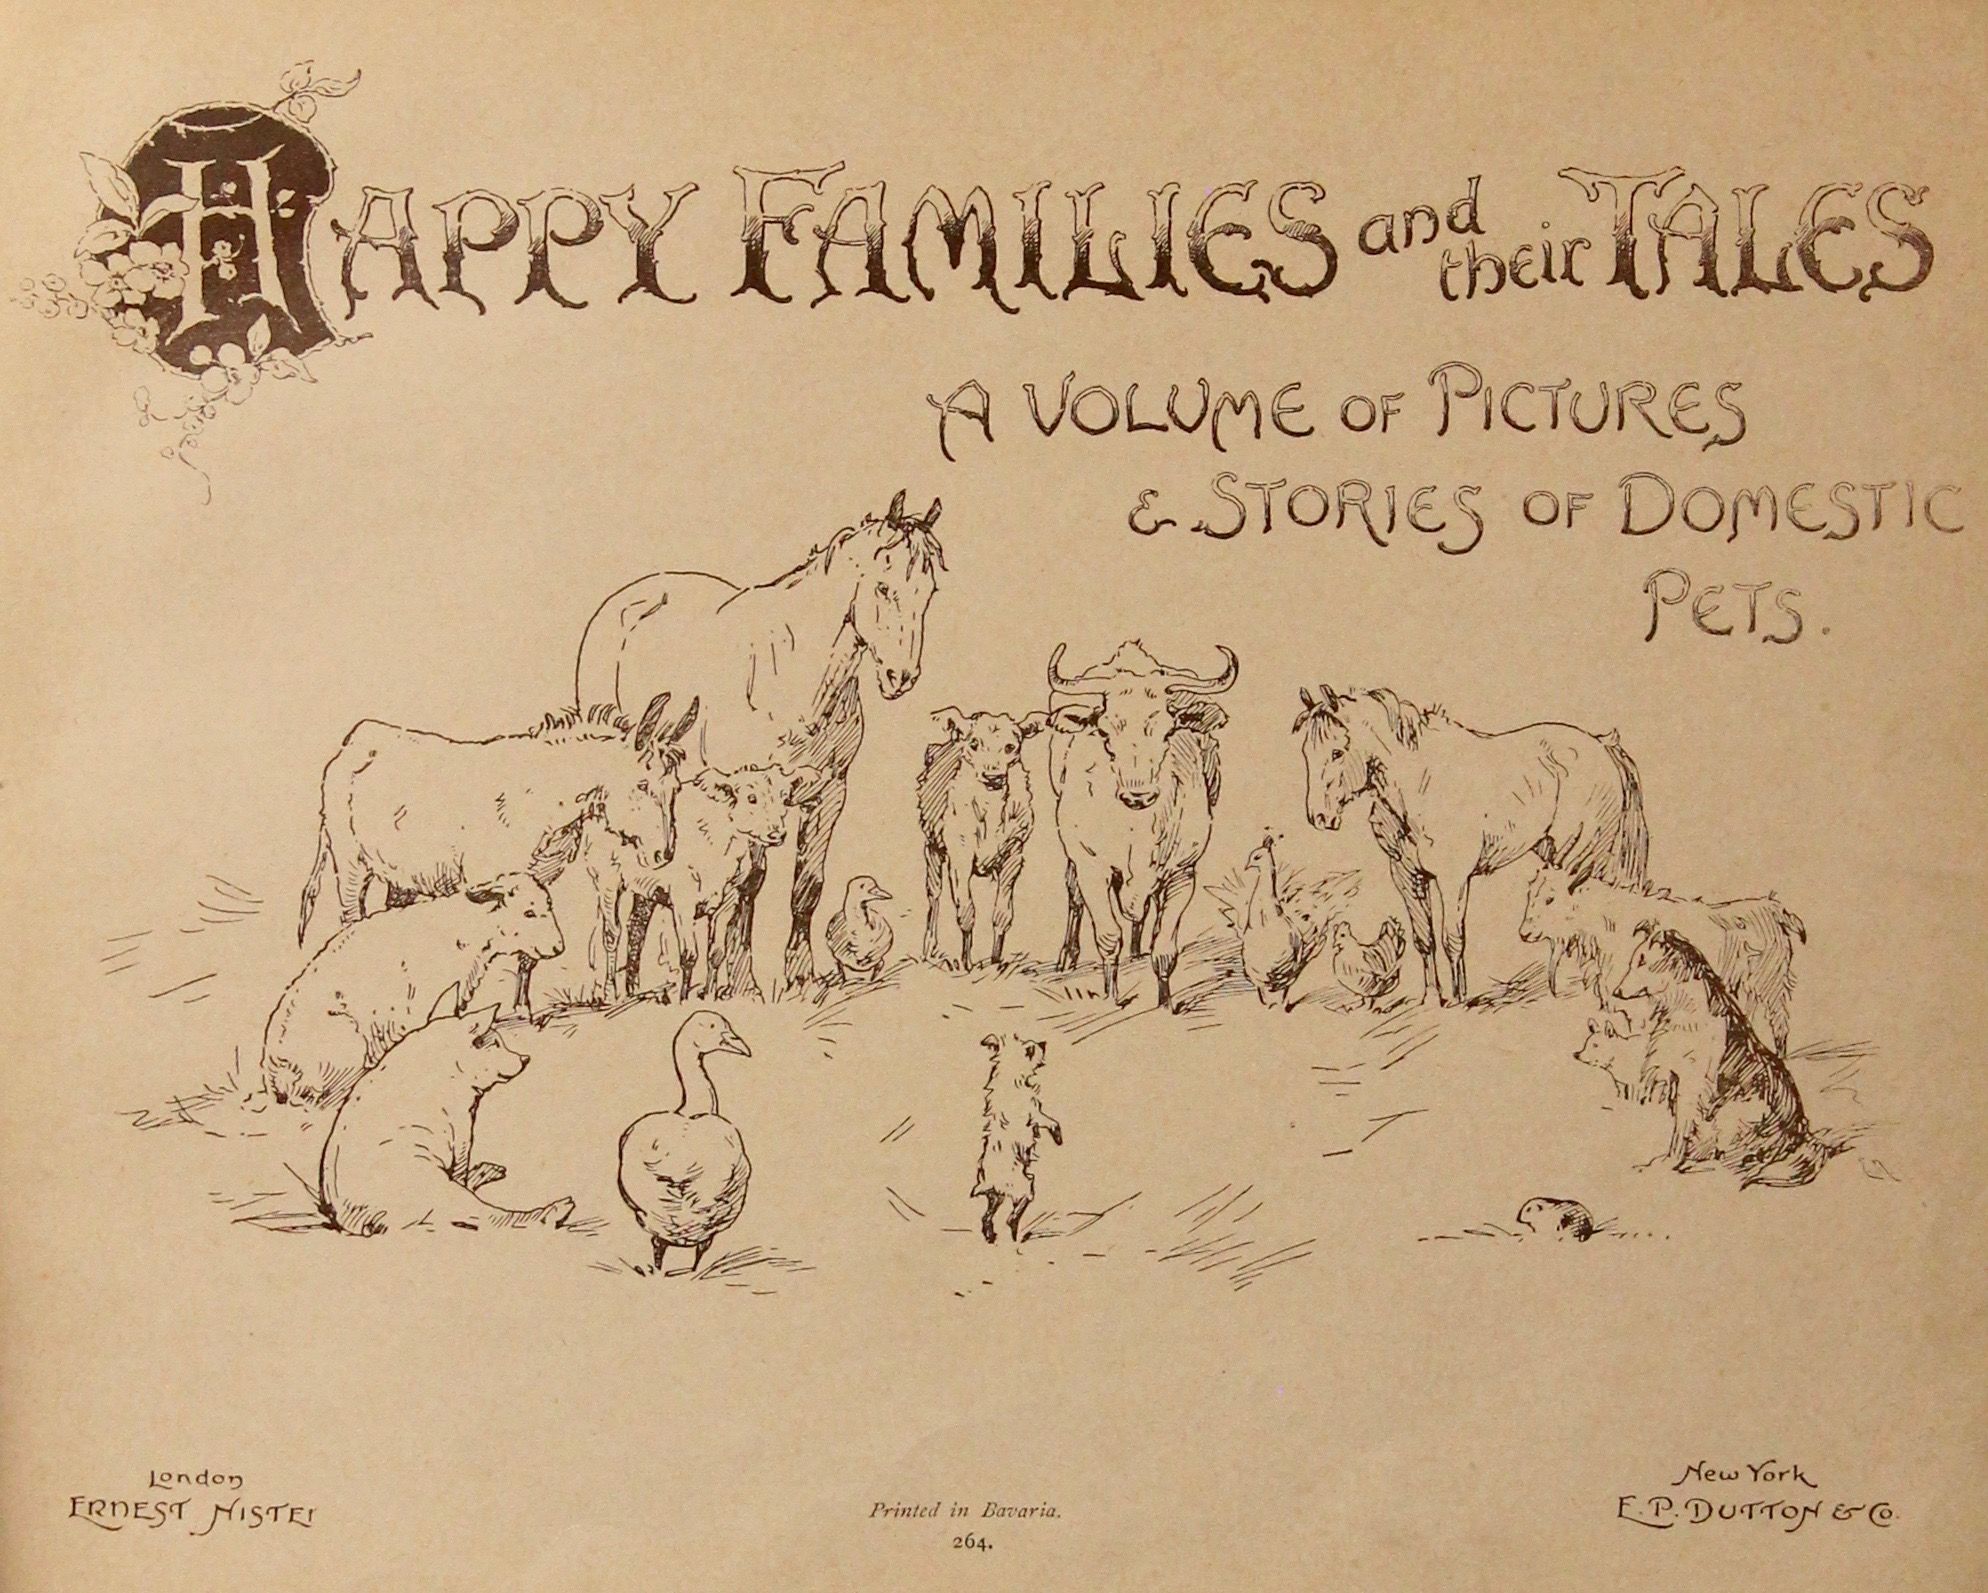 HAPPY FAMILIES and their TALES
A VOLUME OF PICTURES
& STORIES OF DOMESTIC
PETS.
London
ERNEST NISTER
Printed in Bavaria.
264.
New York
E. P. DUTTON & Co.